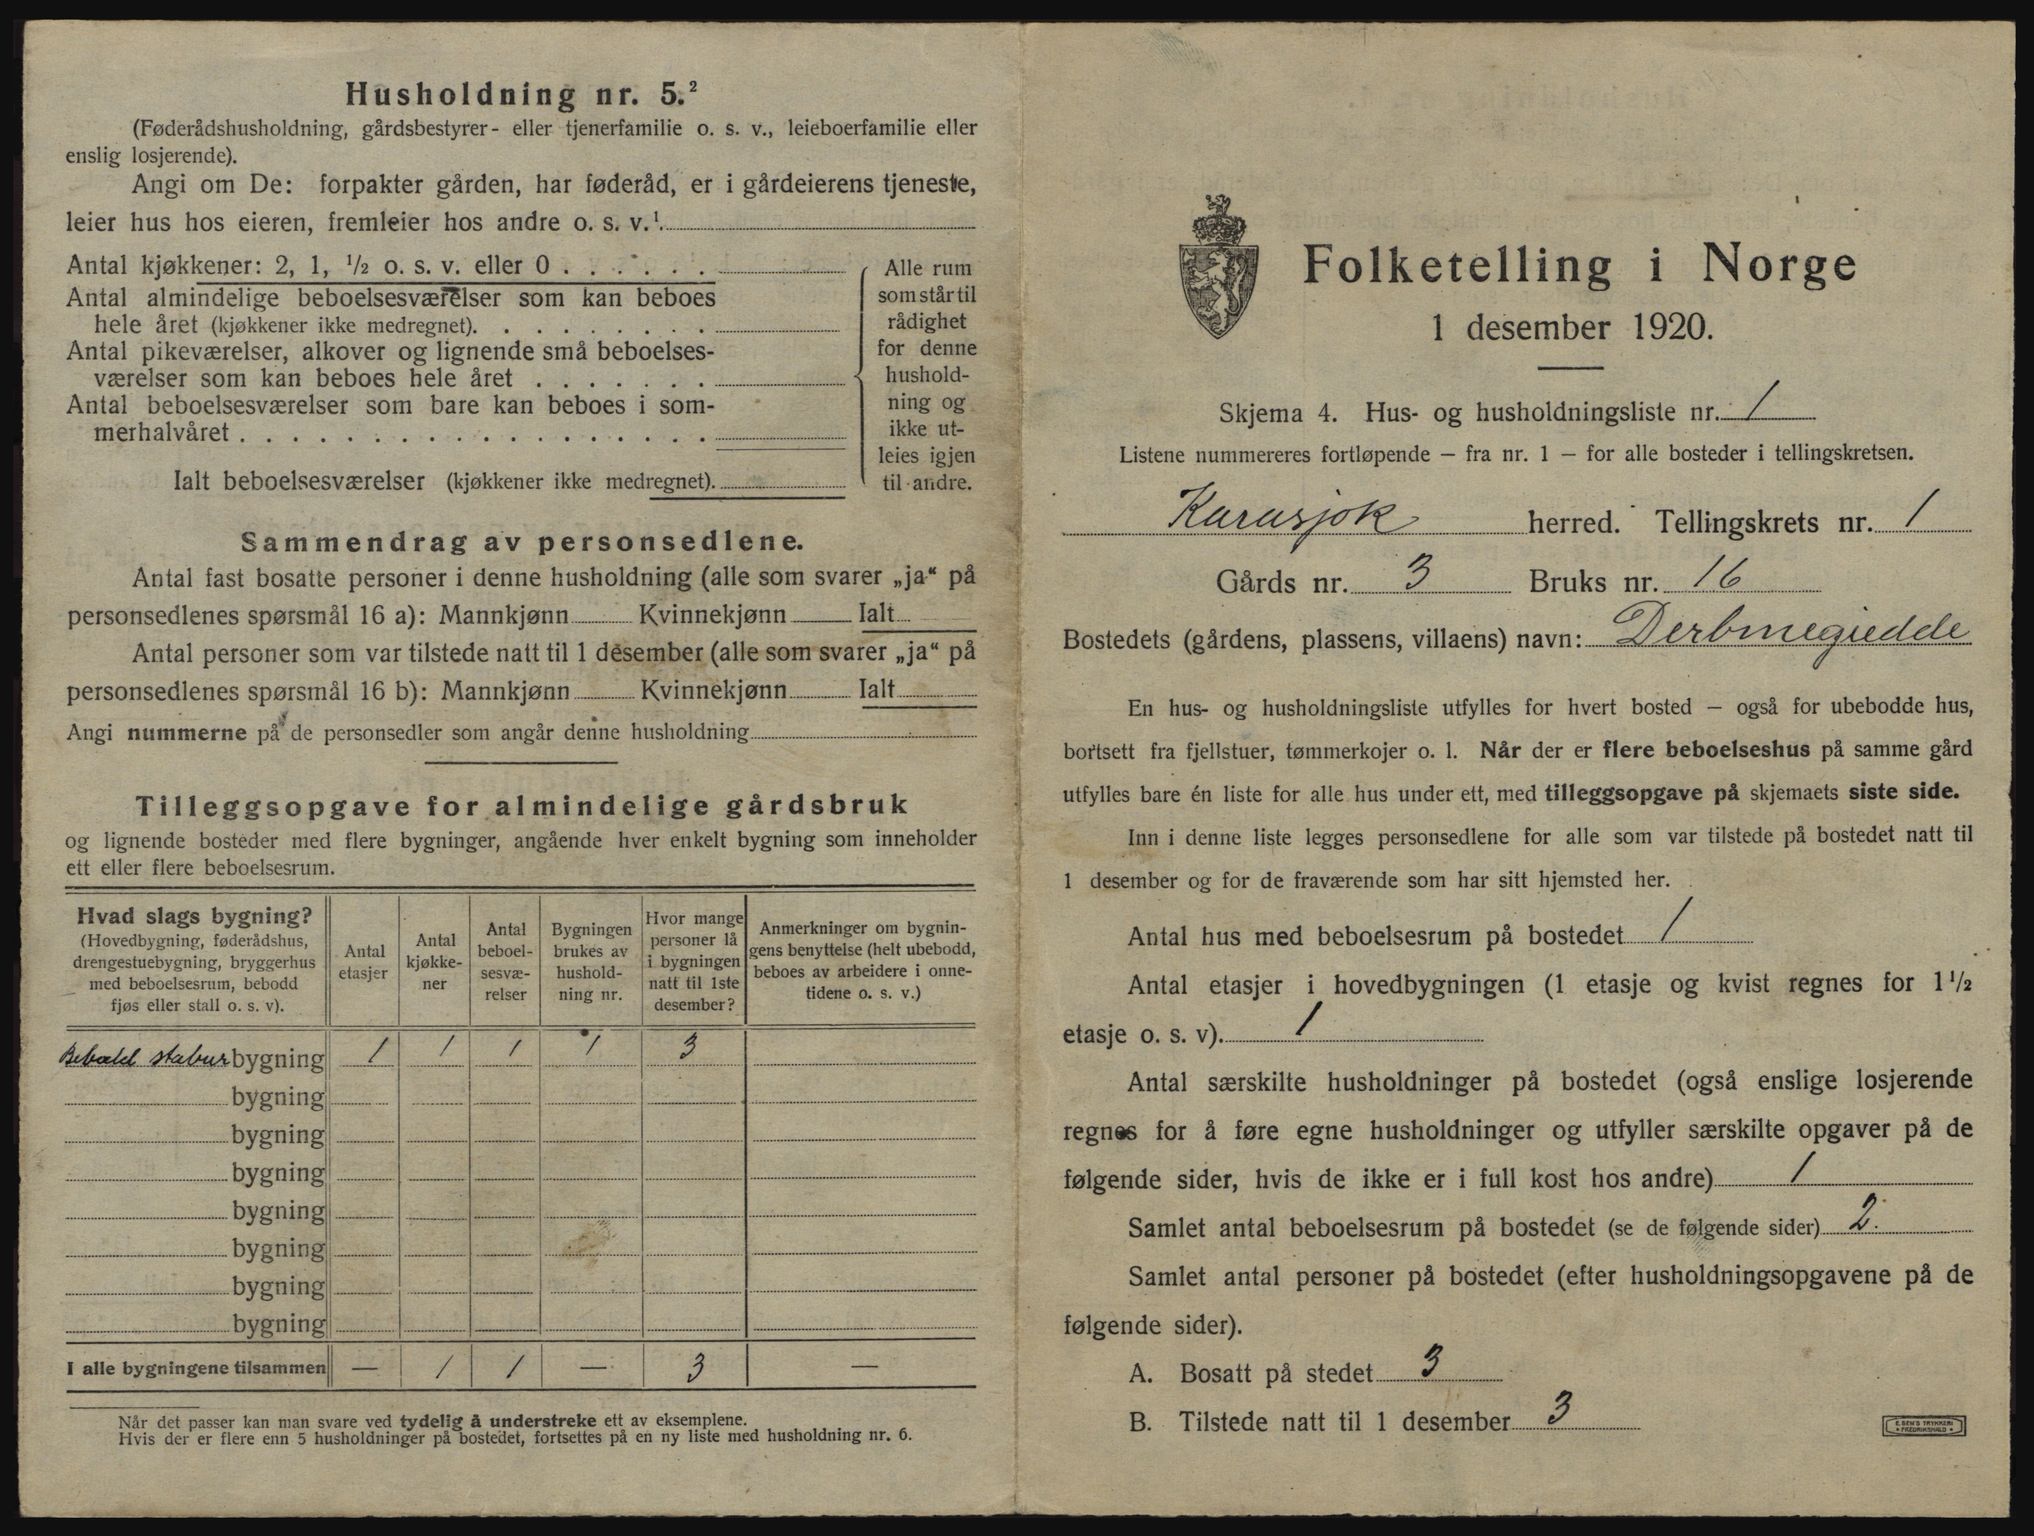 Husholdning nr. 5.²
(Føderådshusholdning, gårdsbestyrer- eller tjenerfamilie o. s. v., leieboerfamilie eller
enslig losjerende).
Angi om De: forpakter gården, har føderåd, er i gårdeierens tjeneste,
leier hus hos eieren, fremleier hos andre o. s. v.¹
Antal kjøkkener: 2, 1, ½ o. s. v. eller 0
Antal almindelige beboelsesværelser som kan beboes
hele året (kjøkkener ikke medregnet).
Antal pikeværelser, alkover og lignende små beboelses-
værelser som kan beboes hele året
Antal beboelsesværelser som bare kan beboes i som-
merhalvåret
Ialt beboelsesværelser (kjøkkener ikke medregnet).
Alle rum
som står til
rådighet
for denne
hushold-
ning og
ikke ut-
leies igjen
til andre.
Sammendrag av personsedlene.
Antal fast bosatte personer i denne husholdning (alle som svarer „ja“ på
personsedlenes spørsmål 16 a): Mannkjønn Kvinnekjønn Ialt
Antal personer som var tilstede natt til 1 desember (alle som svarer „ja“ på
personsedlenes spørsmål 16 b): Mannkjønn Kvinnekjønn Ialt
Angi nummerne på de personsedler som angår denne husholdning
Tilleggsopgave for almindelige gårdsbruk
og lignende bosteder med flere bygninger, angående hver enkelt bygning som inneholder
ett eller flere beboelsesrum.
Hvad slags bygning?
(Hovedbygning, føderådshus,
drengestuebygning, bryggerhus
med beboelsesrum, bebodd
fjøs eller stall o. s. v).
Antal
etasjer
Antal
kjøkke-
ner
Antal
beboel-
sesvæ-
relser
Bygningen
brukes av
hushold-
ning nr.
Hvor mange
personer lå
i bygningen
natt til 1ste
desember?
Anmerkninger om bygnin-
gens benyttelse (helt ubebodd,
beboes av arbeidere i onne-
tidene o. s. v.)
stabur bygning 1 1 1 1 3
bygning
bygning
bygning
bygning
bygning
bygning
bygning
I alle bygningene tilsammen — 1 1 — 3 —
Når det passer kan man svare ved tydelig å understreke ett av eksemplene.
Hvis der er flere enn 5 husholdninger på bostedet, fortsettes på en ny liste med husholdning nr. 6.
Folketelling i Norge
1 desember 1920.
Skjema 4. Hus- og husholdningsliste nr. 1
Listene nummereres fortløpende – fra nr. 1 – for alle bosteder i tellingskretsen.
Karasjok herred. Tellingskrets nr. 1
Gårds nr. 3 Bruks nr. 16
Bostedets (gårdens, plassens, villaens) navn: Derbmegiedde
En hus- og husholdningsliste utfylles for hvert bosted – også for ubebodde hus,
bortsett fra fjellstuer, tømmerkojer o. l. Når der er flere beboelseshus på samme gård
utfylles bare én liste for alle hus under ett, med tilleggsopgave på skjemaets siste side.
Inn i denne liste legges personsedlene for alle som var tilstede på bostedet natt til
1 desember og for de fraværende som har sitt hjemsted her.
Antal hus med beboelsesrum på bostedet 1
Antal etasjer i hovedbygningen (1 etasje og kvist regnes for 1½
etasje o. s. v). 1
Antal særskilte husholdninger på bostedet (også enslige losjerende
regnes for å føre egne husholdninger og utfyller særskilte opgaver på de
følgende sider, hvis de ikke er i full kost hos andre) 1
Samlet antal beboelsesrum på bostedet (se de følgende sider) 2.
Samlet antal personer på bostedet (efter husholdningsopgavene på de
følgende sider).
A. Bosatt på stedet 3
B. Tilstede natt til 1 desember 3
E. SEM'S TRYKKERI
FREDRIKSHALD